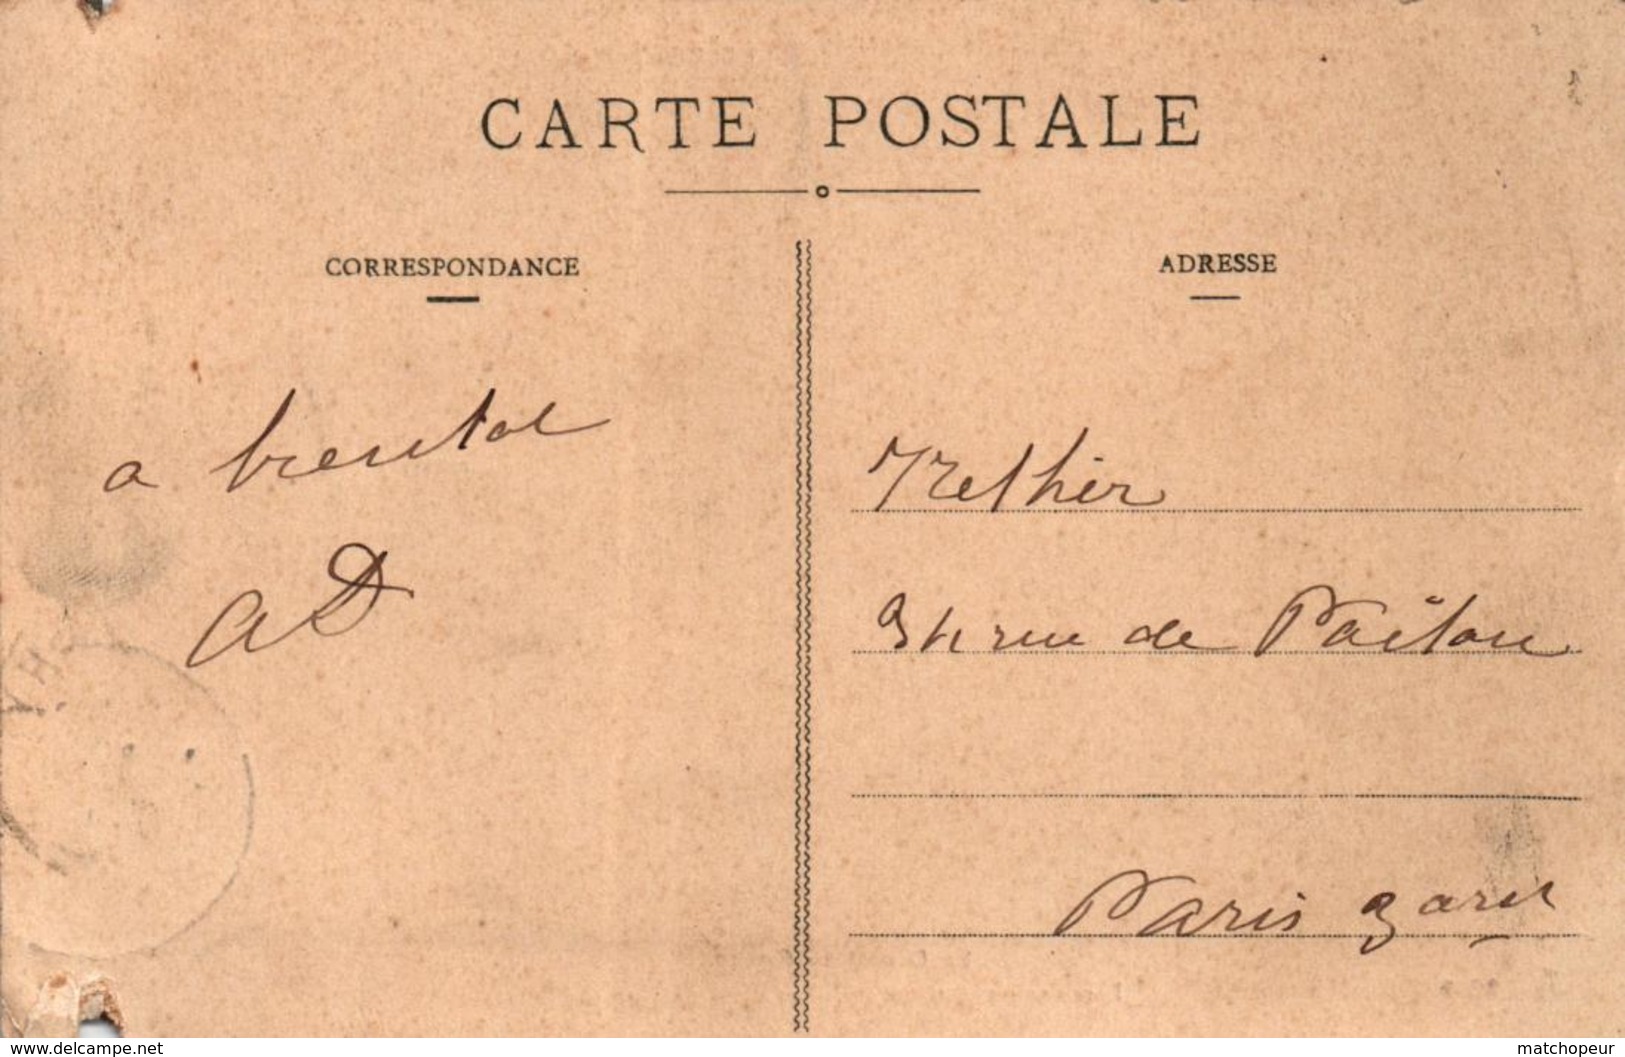 CARTE POSTALE
CORRESPONDANCE
ADRESSE
a bientot
AD
rue de Poitou
Paris 3 arr
www.delcampe.net
matchopeur